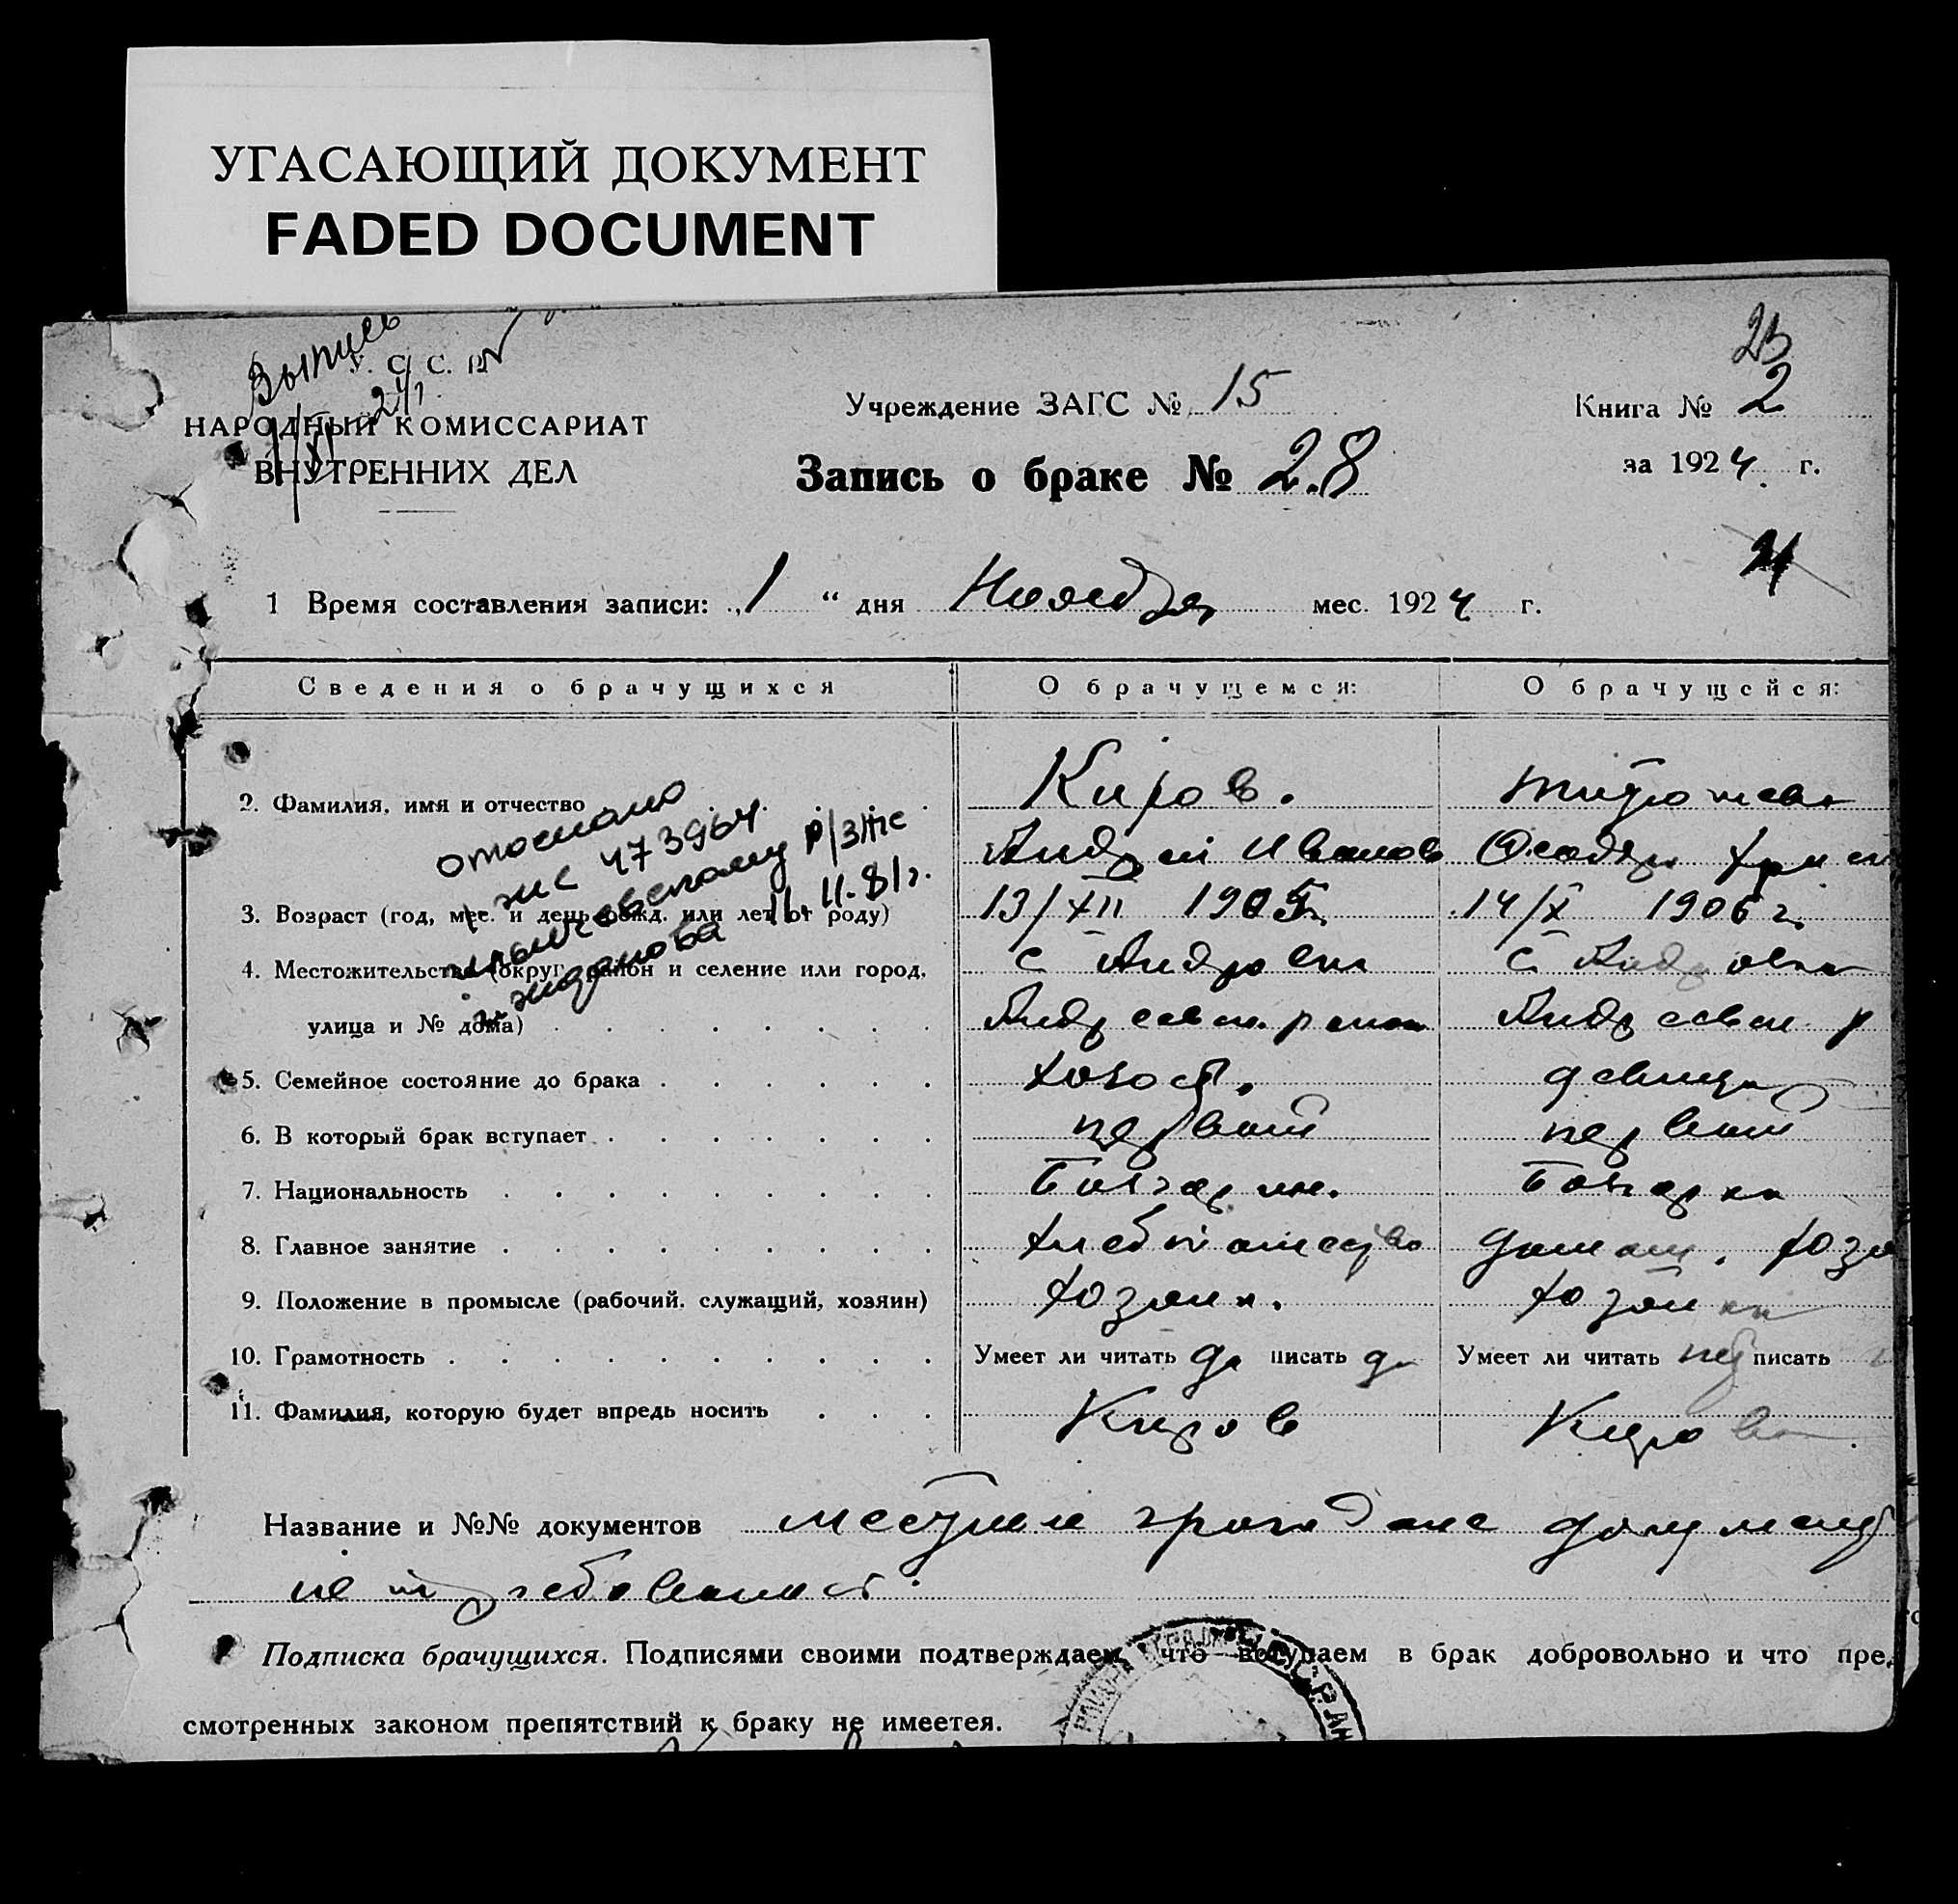 УГАСАЮЩИЙ ДОКУМЕНТ
FADED DOCUMENT
У. С. С. Р.
НАРОДНЫЙ КОМИССАРИАТ
ВНУТРЕННИХ ДЕЛ
Учреждение ЗАГС № 15
Книга № 2
Запись о браке № 28
за 1924 г.
1 Время составления записи: „1“ дня Ноября мес. 1924 г.
Сведения о брачущихся О брачущемся: О брачущейся:
2. Фамилия, имя и отчество Киров.
Андрей Иванов
3. Возраст (год, мес. и день рожд. или лет от роду) 13/XII 1905 г. 14/X 1906 г.
4. Местожительство (округ, район и селение или город, с Андровка с Андровка
улица и № дома) Андреевск. район Андреевск р
5. Семейное состояние до брака холост. девица
6. В который брак вступает первый первый
7. Национальность Болгарин. Болгарка
8. Главное занятие хлебопашество домаш. хозя
9. Положение в промысле (рабочий, служащий, хозяин) хозяин. хозяйка
10. Грамотность Умеет ли читать да писать да Умеет ли читать нет писать
11. Фамилия, которую будет впредь носить Киров Кирова
отослано
11.11.81г.
Название и №№ документов местные граждане документ
не потребовались.
Подписка брачущихся. Подписями своими подтверждаем, что вступаем в брак добровольно и что пред
смотренных законом препятствий к браку не имеется.